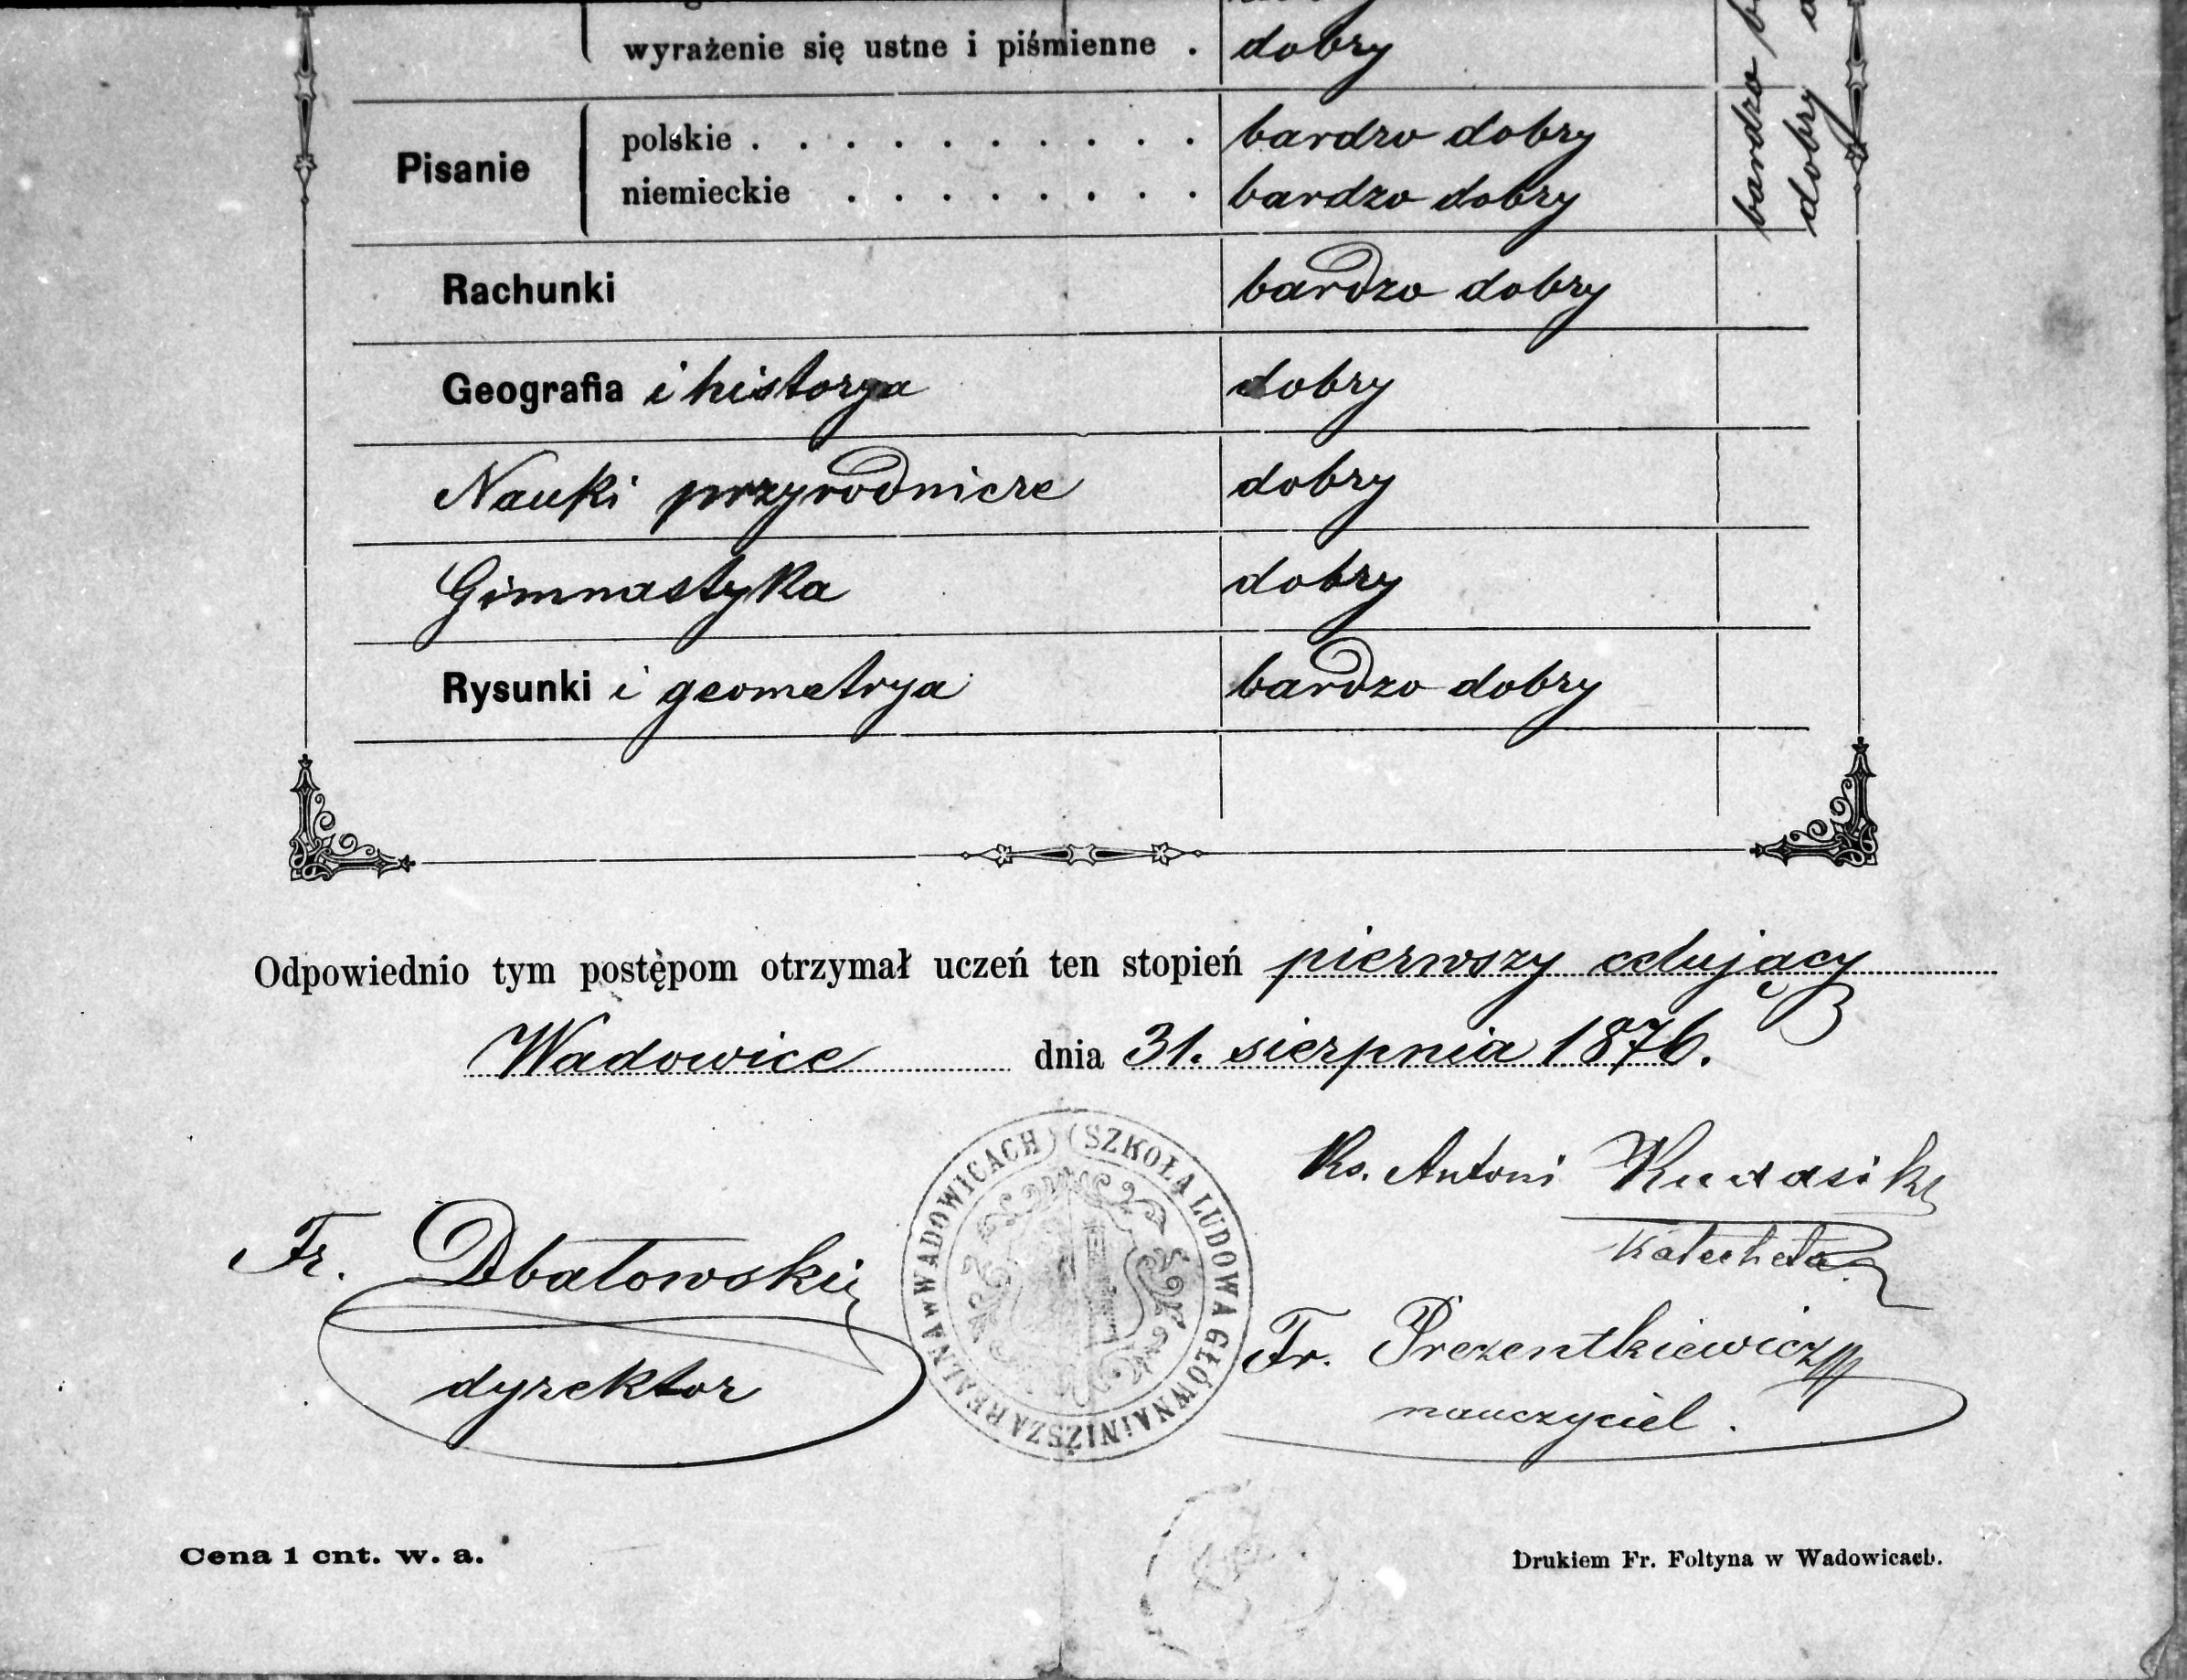 wyrażenie się ustne i piśmienne . dobry
Pisanie
polskie . . . . . . . . . . bardzo dobry
niemieckie . . . . . . . . bardzo dobry
bardzo
dobry
Rachunki bardzo dobry
Geografia i historya dobry
Nauki przyrodnicze dobry
Gimnastyka dobry
Rysunki i geometrya bardzo dobry
Odpowiednio tym postępom otrzymał uczeń ten stopień pierwszy celujący
Wadowice dnia 31. sierpnia 1876.
SZKOŁA LUDOWA GŁÓWNA I NIŻSZA REALNA w WADOWICACH
Ks. Antoni
Katecheta
Fr. Dbałowski
dyrektor
Fr. Prezentkiewicz
nauczyciel.
Cena 1 cnt. w. a.
Drukiem Fr. Foltyna w Wadowicach.